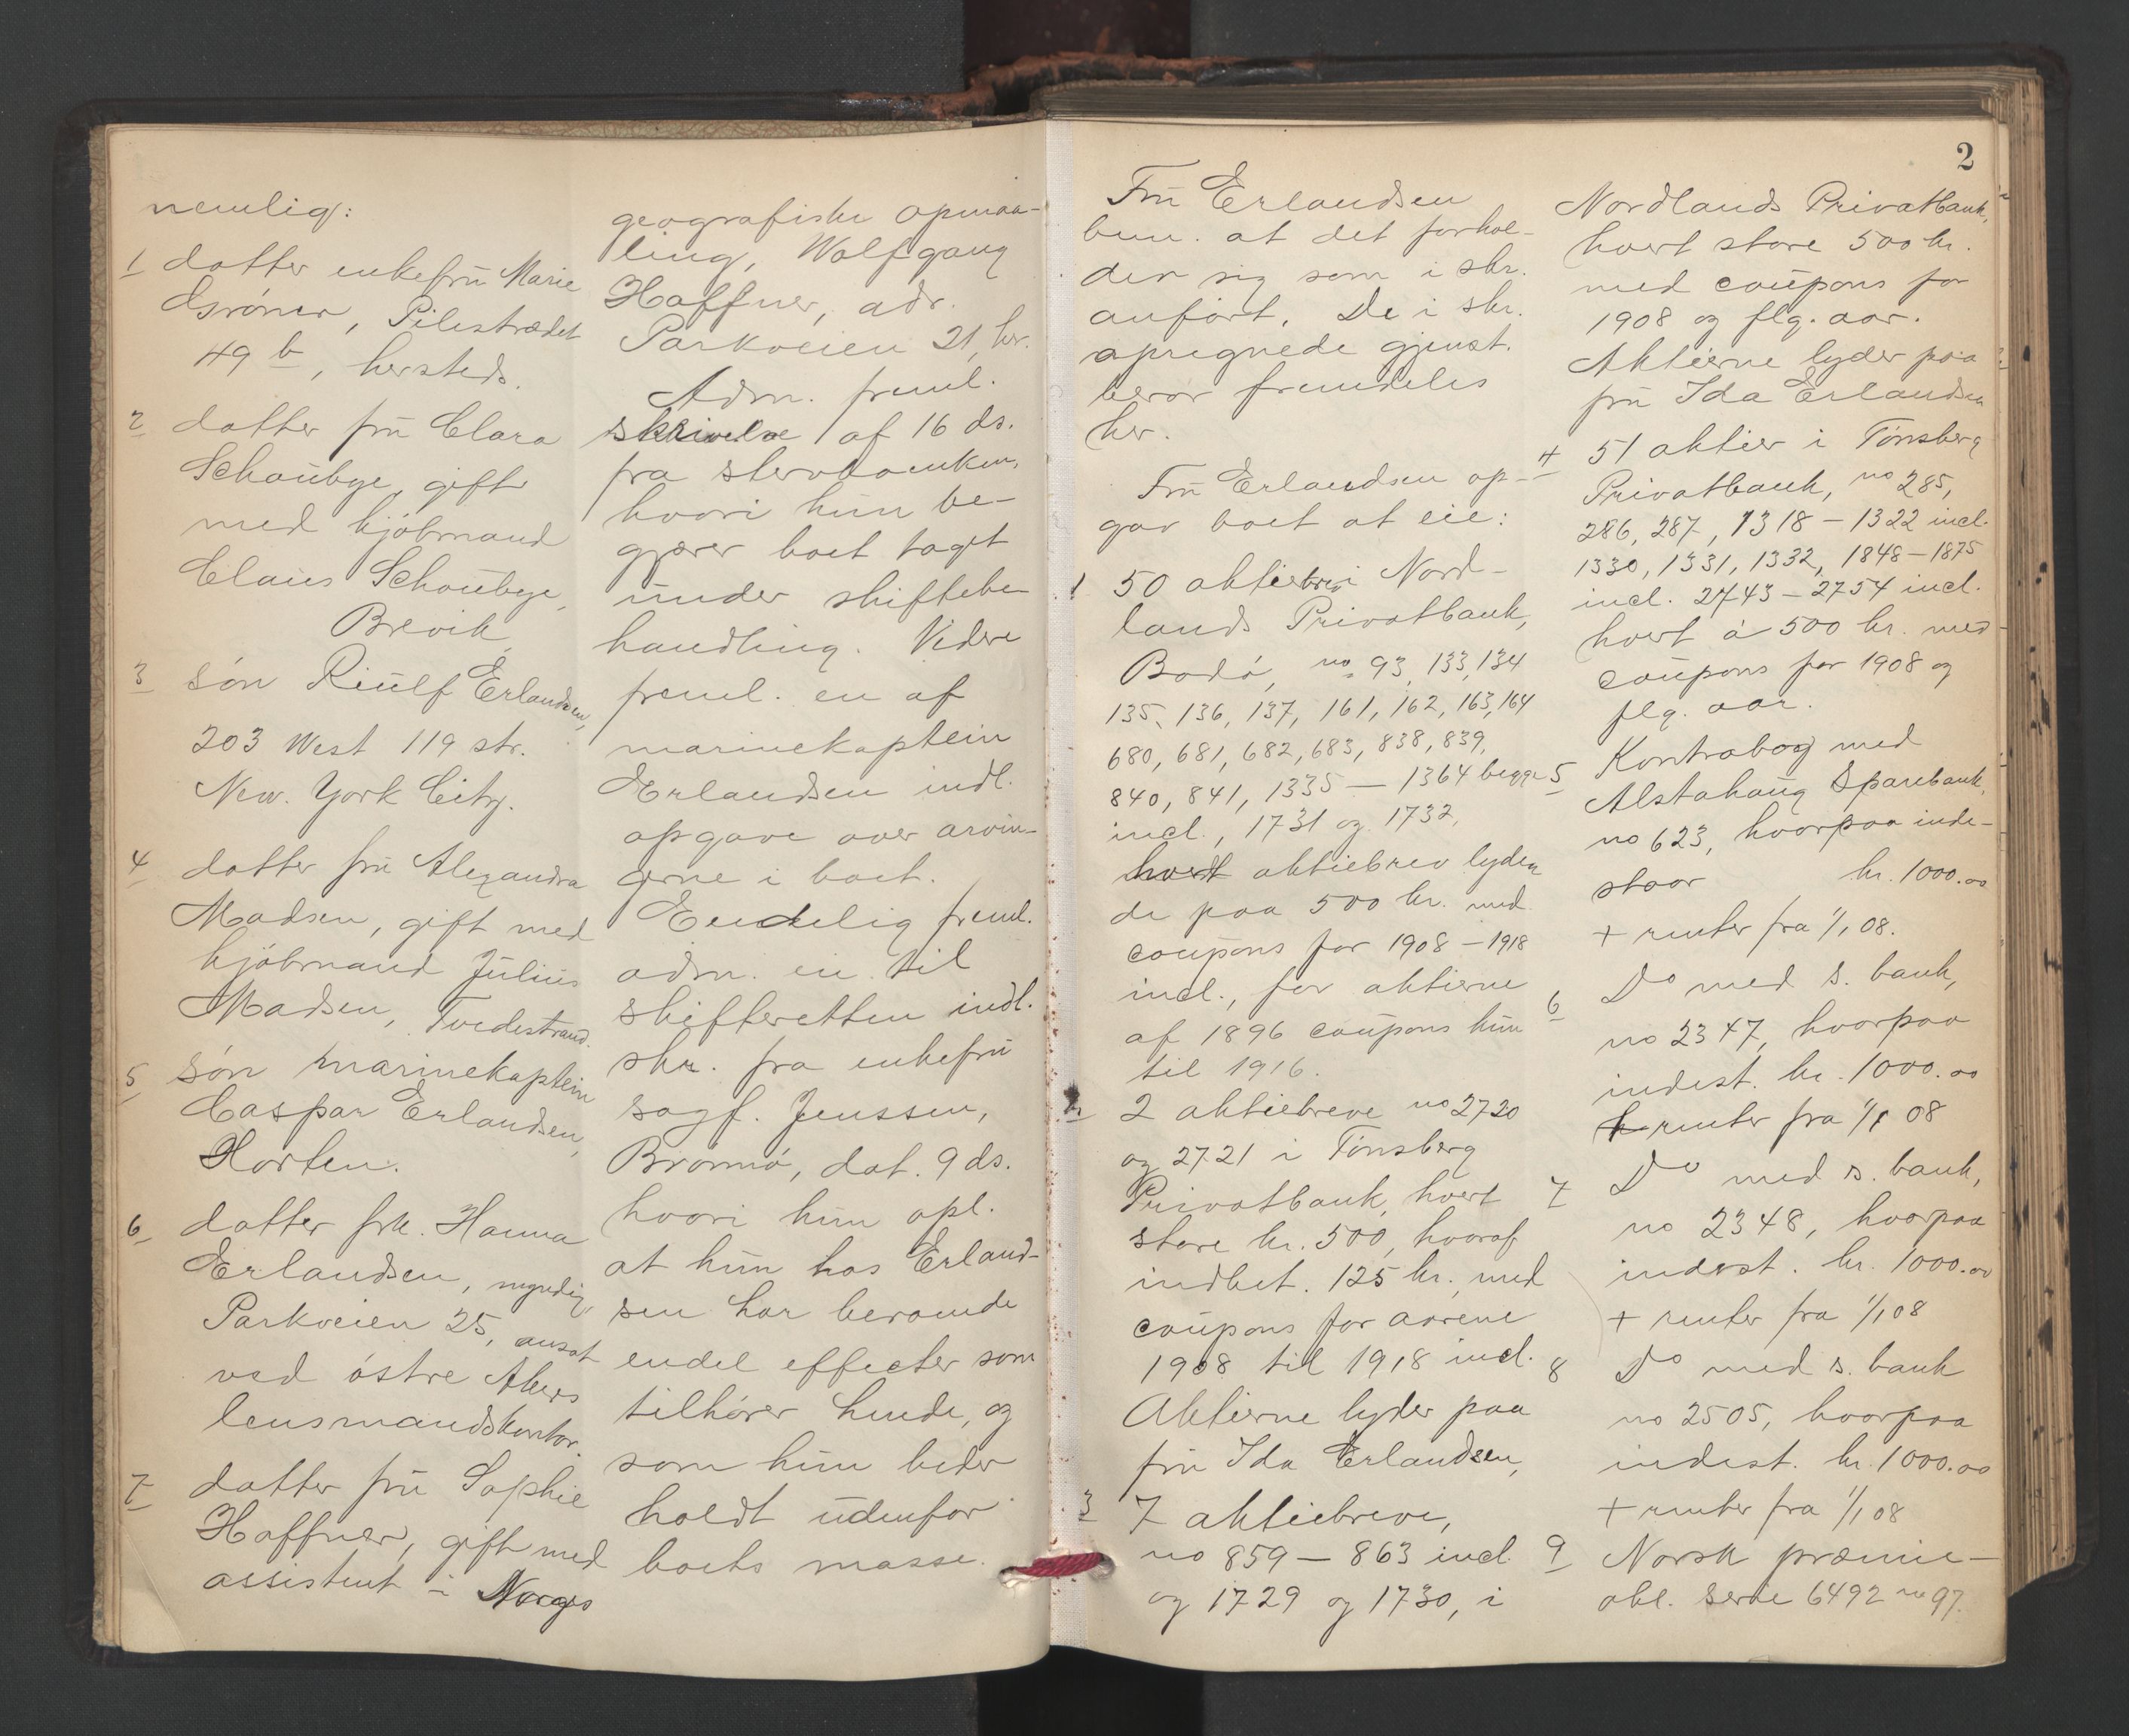 nemlig:
1 datter enkefrü Marie
Grøner, Pilestrædet
49 b, hersteds.
2 datter frü Clara
Schoübye, gift
med kjøbmand
Claus Schoübye,
Brevik
3 søn Riülf Erlandsen,
203 West 119 str.
New. York City.
4 datter frü Alexandra
Madsen, gift med
kjøbmand Jülius
Madsen, Tvedestrand.
5 søn marinekaptein
Caspar Erlandsen,
Horten.
6 datter frk. Hanna
Erlandsen, myndig,
Parkveien 25, ansat
ved østre Akers
lensmandskontor.
7 datter frü Sophie
Haffner, gift med
assistent i Norges
geografiske opmaa-
ling, Wolfgang
Haffner, adr.
Parkveien 21, hr.
Adm. freml.
skrivelse af 16 ds.
fra stervboenken,
hvori hün be-
gjærer boet taget
ünder skiftebe-
handling. Videre
freml. en af
marinekaptein
Erlandsen indl.
opgave over arvin-
gerne i boet.
Endelig freml.
adm. en til
skifteretten indl.
skr. fra enkefrü
sagf. Jenssen,
Bromnø, dat. 9 ds.
hvori hün opl.
at hün hos Erland-
sen har beroende
endel effecter som
tilhører hende, og
som hün beder
holdt üdenfor
boets masse.
2
Frü Erlandsen
bem. at det forhol-
der sig som i skr.
anført. De i skr.
opregnede gjenst.
beror fremdeles
her.
Frü Erlandsen op-
gav boet at eie:
1 50 aktiebr. i Nord-
lands Privatbank,
Bodø, no 93, 133, 134
135, 136, 137, 161, 162, 163, 164
680, 681, 682, 683, 838, 839,
840, 841, 1335 — 1364 begge
incl., 1731 og 1732,
hvert aktiebrev lyden
de paa 500 kr. med
coüpons for 1908 – 1918
incl., for aktierne
af 1896 coüpons kün
til 1916.
2 2 aktiebreve no 2720
og 2721 i Tønsberg
Privatbank, hvert
store kr. 500, hvoraf
indbet. 125 kr., med
coüpons for aarene
1908 til 1918 incl.
Aktierne lyder paa
frü Ida Erlandsen,
3 7 aktiebreve,
no 859 — 863 incl.
og 1729 og 1730, i
Nordlands Privatbank,
hvert store 500 kr.
med coüpons for
1908 og flg. aar.
Aktierne lyder paa
frü Ida Erlandsen
4 51 aktier i Tønsberg
Privatbank, no 285,
286, 287, 1318 – 1322 incl.
1330, 1331, 1332, 1848 – 1875
incl. 2743 – 2754 incl.
hvert à 500 kr. med
coüpons for 1908 og
flg. aar.
5 Kontrabog med
Alstahaug Sparebank,
no 623, hvorpaa inde-
staar kr. 1000.00
+ renter fra 1/1 08.
6 Do med s. bank,
no 2347, hvorpaa
indest. kr. 1000.00
+ renter fra 1/1 08
7 Do med s. bank,
no 2348, hvorpaa
indest. kr. 1000.00
+ renter fra 1/1 08
8 Do med s. bank
no 2505, hvorpaa
indest. kr. 1000.00
+ renter fra 1/1 08
9 Norsk præmie-
obl. serie 6492 no 97.